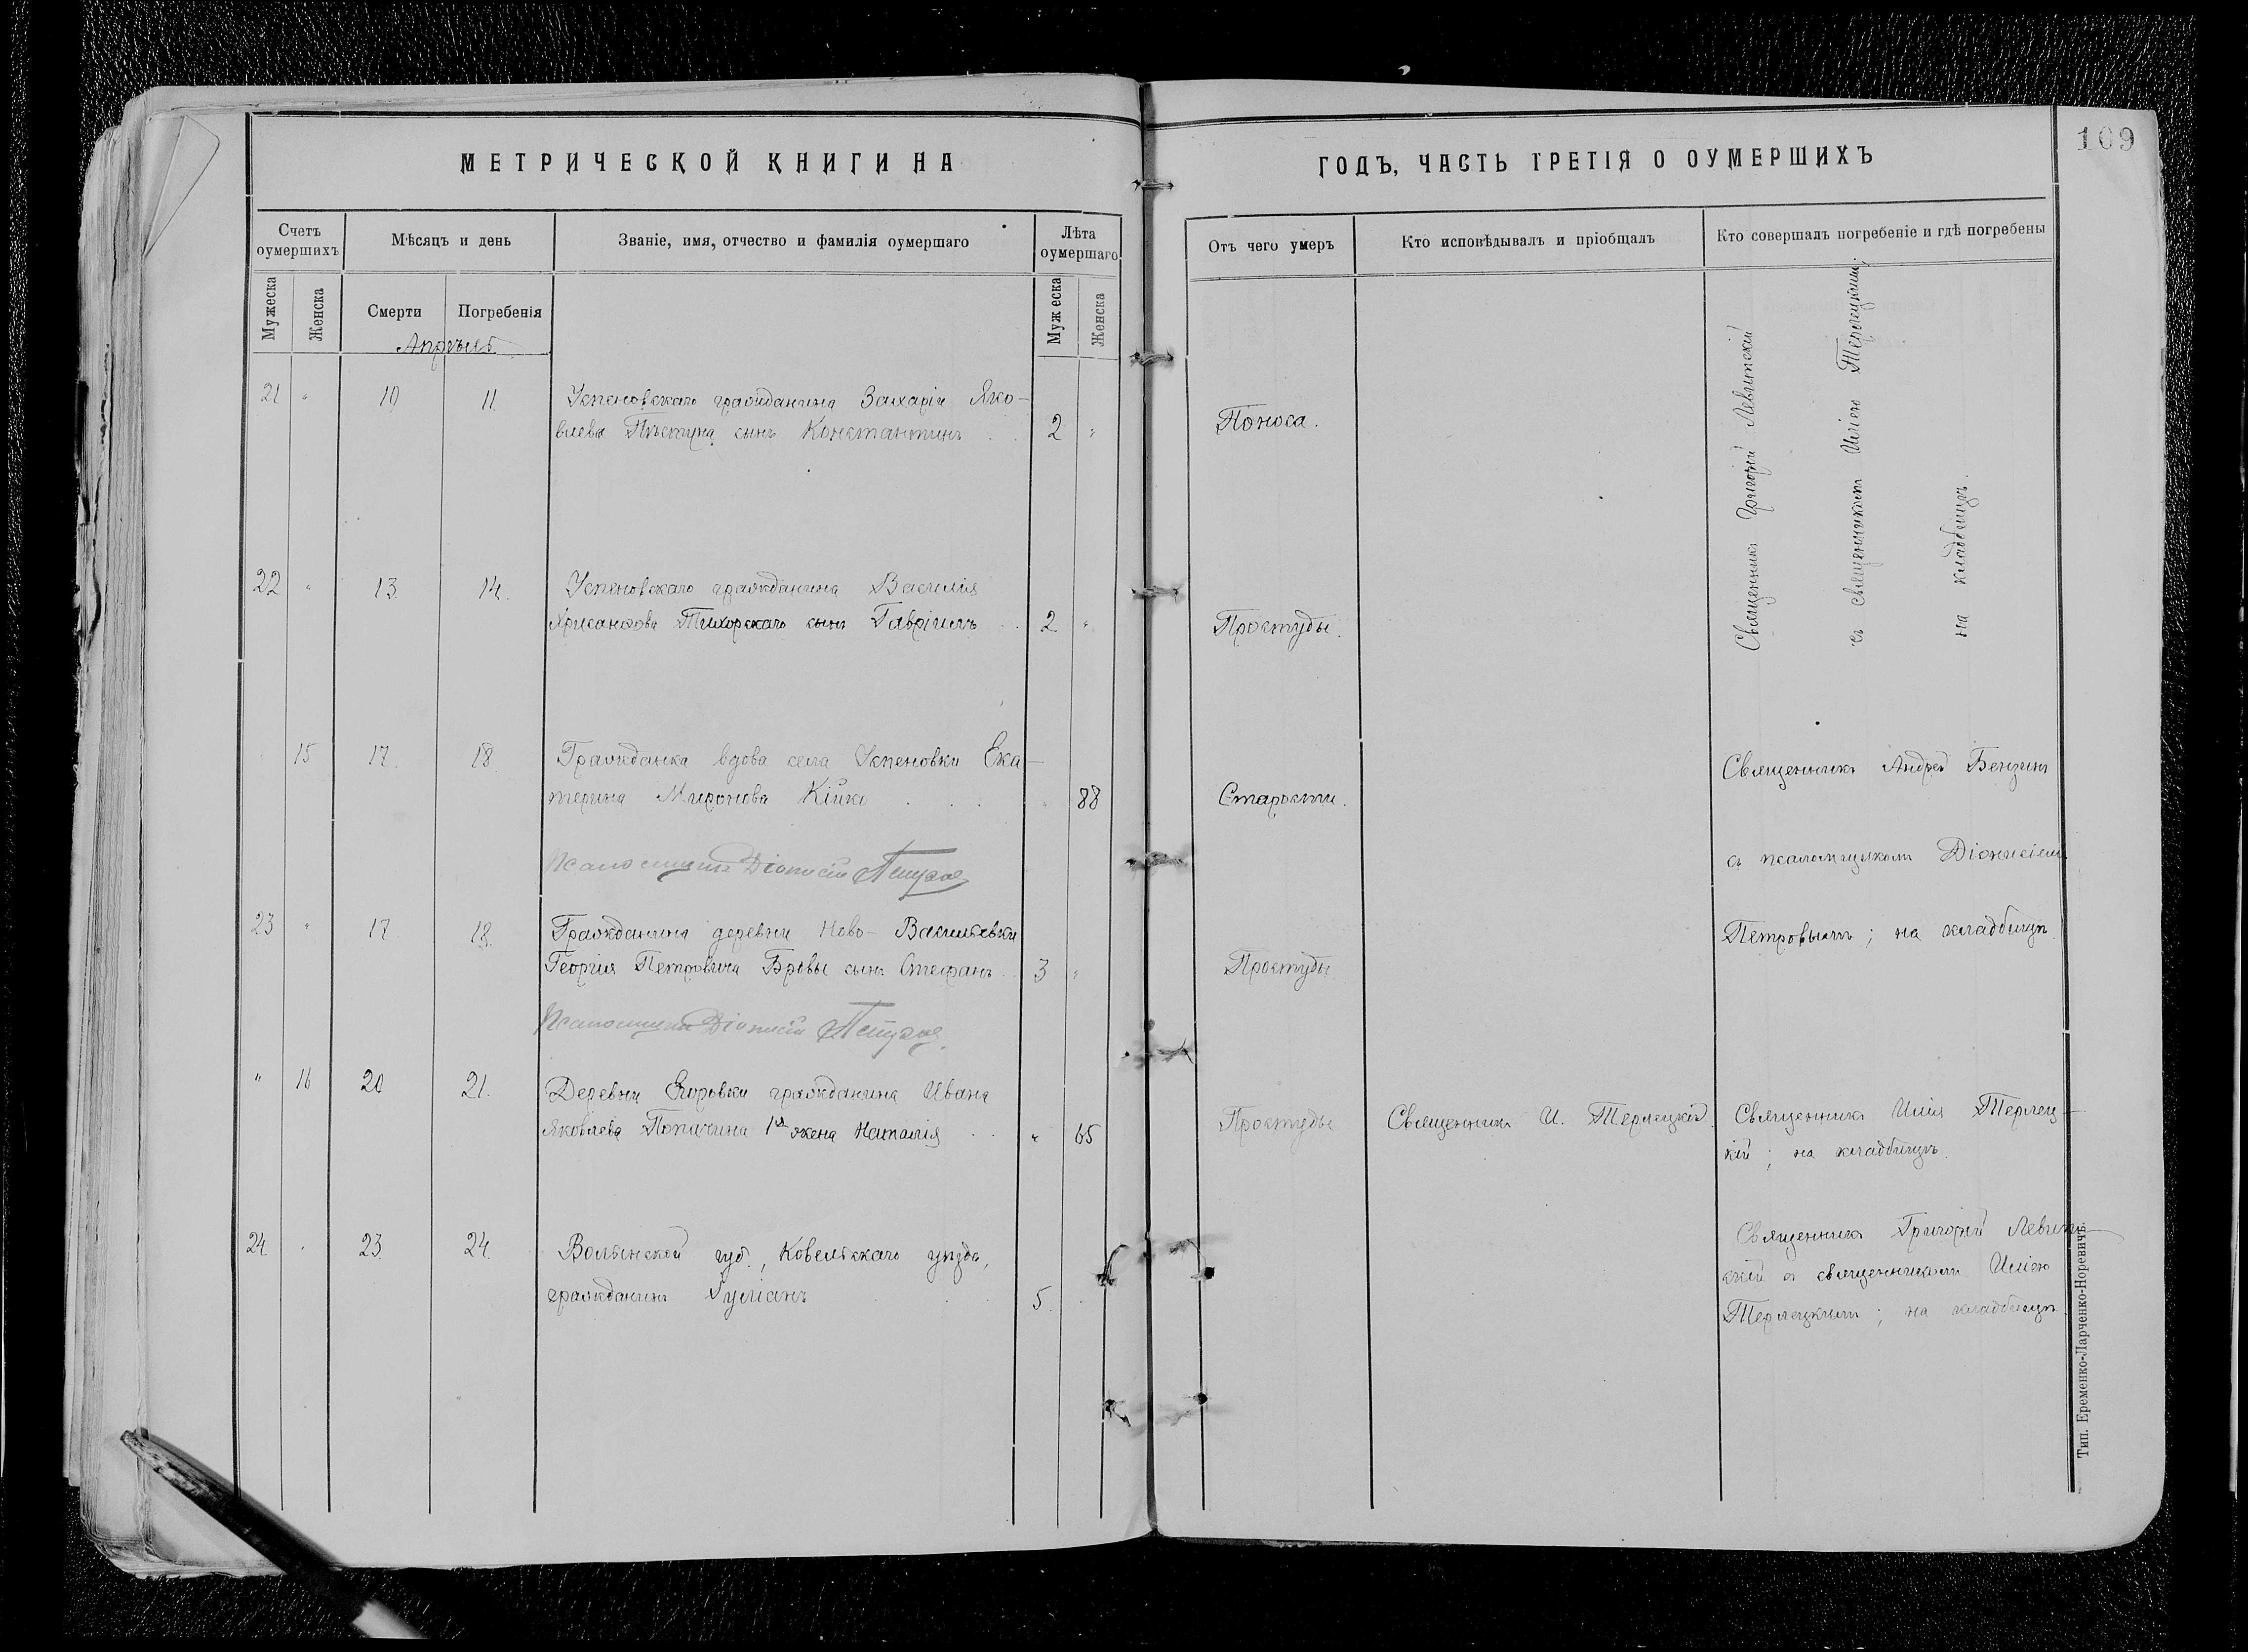 109
МЕТРИЧЕСКОЙ КНИГИ НА
ГОДЪ, ЧАСТЬ ТРЕТІЯ О ОУМЕРШИХЪ
Счетъ оумершихъ
Мѣсяцъ и день
Званіе, имя, отчество и фамилія оумершаго
Лѣта оумершаго
Отъ чего умеръ
Кто исповѣдывалъ и пріобщалъ
Кто совершалъ погребеніе и гдѣ погребены
Мужеска
Женска
Смерти
Погребенія
Мужеска
Женска
Апрѣль
21 " 10 11. Успеновскаго гражданина Захарія Яко-
влева сынъ Константинъ . . 2 " Поноса.
Священникъ Григорій Левитскій
съ священникомъ Иліею Терлецкимъ;
на кладбищѣ.
22 " 13. 14. Успеновскаго гражданина Василія
Тихорскаго сынъ Гавріилъ . . 2 " Простуды.
" 15 17. 18. Гражданка вдова села Успеновки Ека-
терина Миронова . . . " 88 Старости.
Священникъ Андрей
съ псаломщикомъ Діонисіемъ
Петровымъ; на кладбищѣ.
Псаломщикъ Діонисій
23 " 17 18. Гражданина деревни Ново-Васильевки
Георгія Петровича Бровы сынъ Стефанъ . . 3 " Простуды
Псаломщикъ Діонисій
" 16 20 21. Деревни Егоровки гражданина Ивана
Яковлева 1я жена Наталія . . " 65 Простуды Священникъ И. Терлецкій.
Священникъ Илія Терлец-
кій; на кладбищѣ.
24 . 23. 24. Волынской губ., Ковельскаго уѣзда,
гражданинъ . . . 5.
Священникъ Григорій Левит-
скій съ священникомъ Иліею
Терлецкимъ; на кладбищѣ.
Тип. Еременко-Ларченко-Норевичъ.